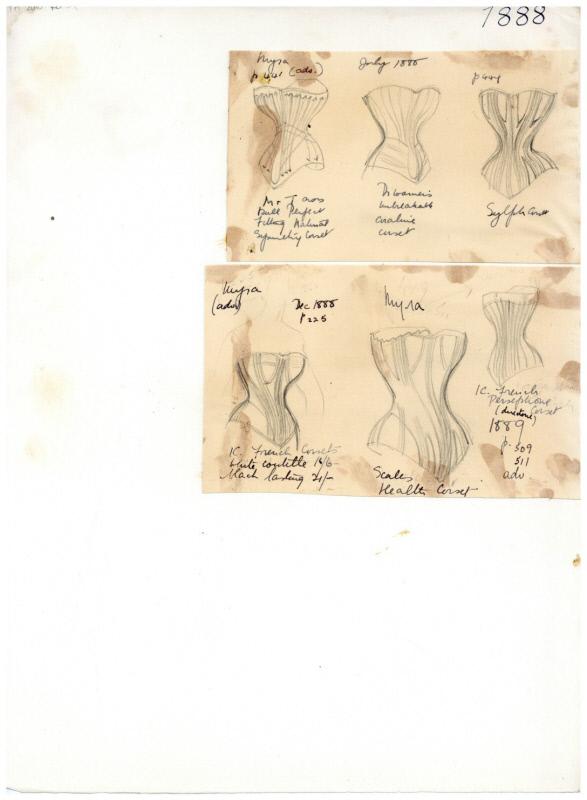 1888
Myra
p 441 (ads.)
July 1888
p 441
Perfect
Fitting
Symmetry Corset
Dr Warner's
Unbreakable
coraline
corset
Sylph Corset
Myra
(adv)
Dec 1888
p 225
IC. French Corsets
White coutille
Black lasting 21/-
Myra
Scales
Health Corset
IC. French
Persephone
(directoire) Corset
1889
p. 509
511
adv